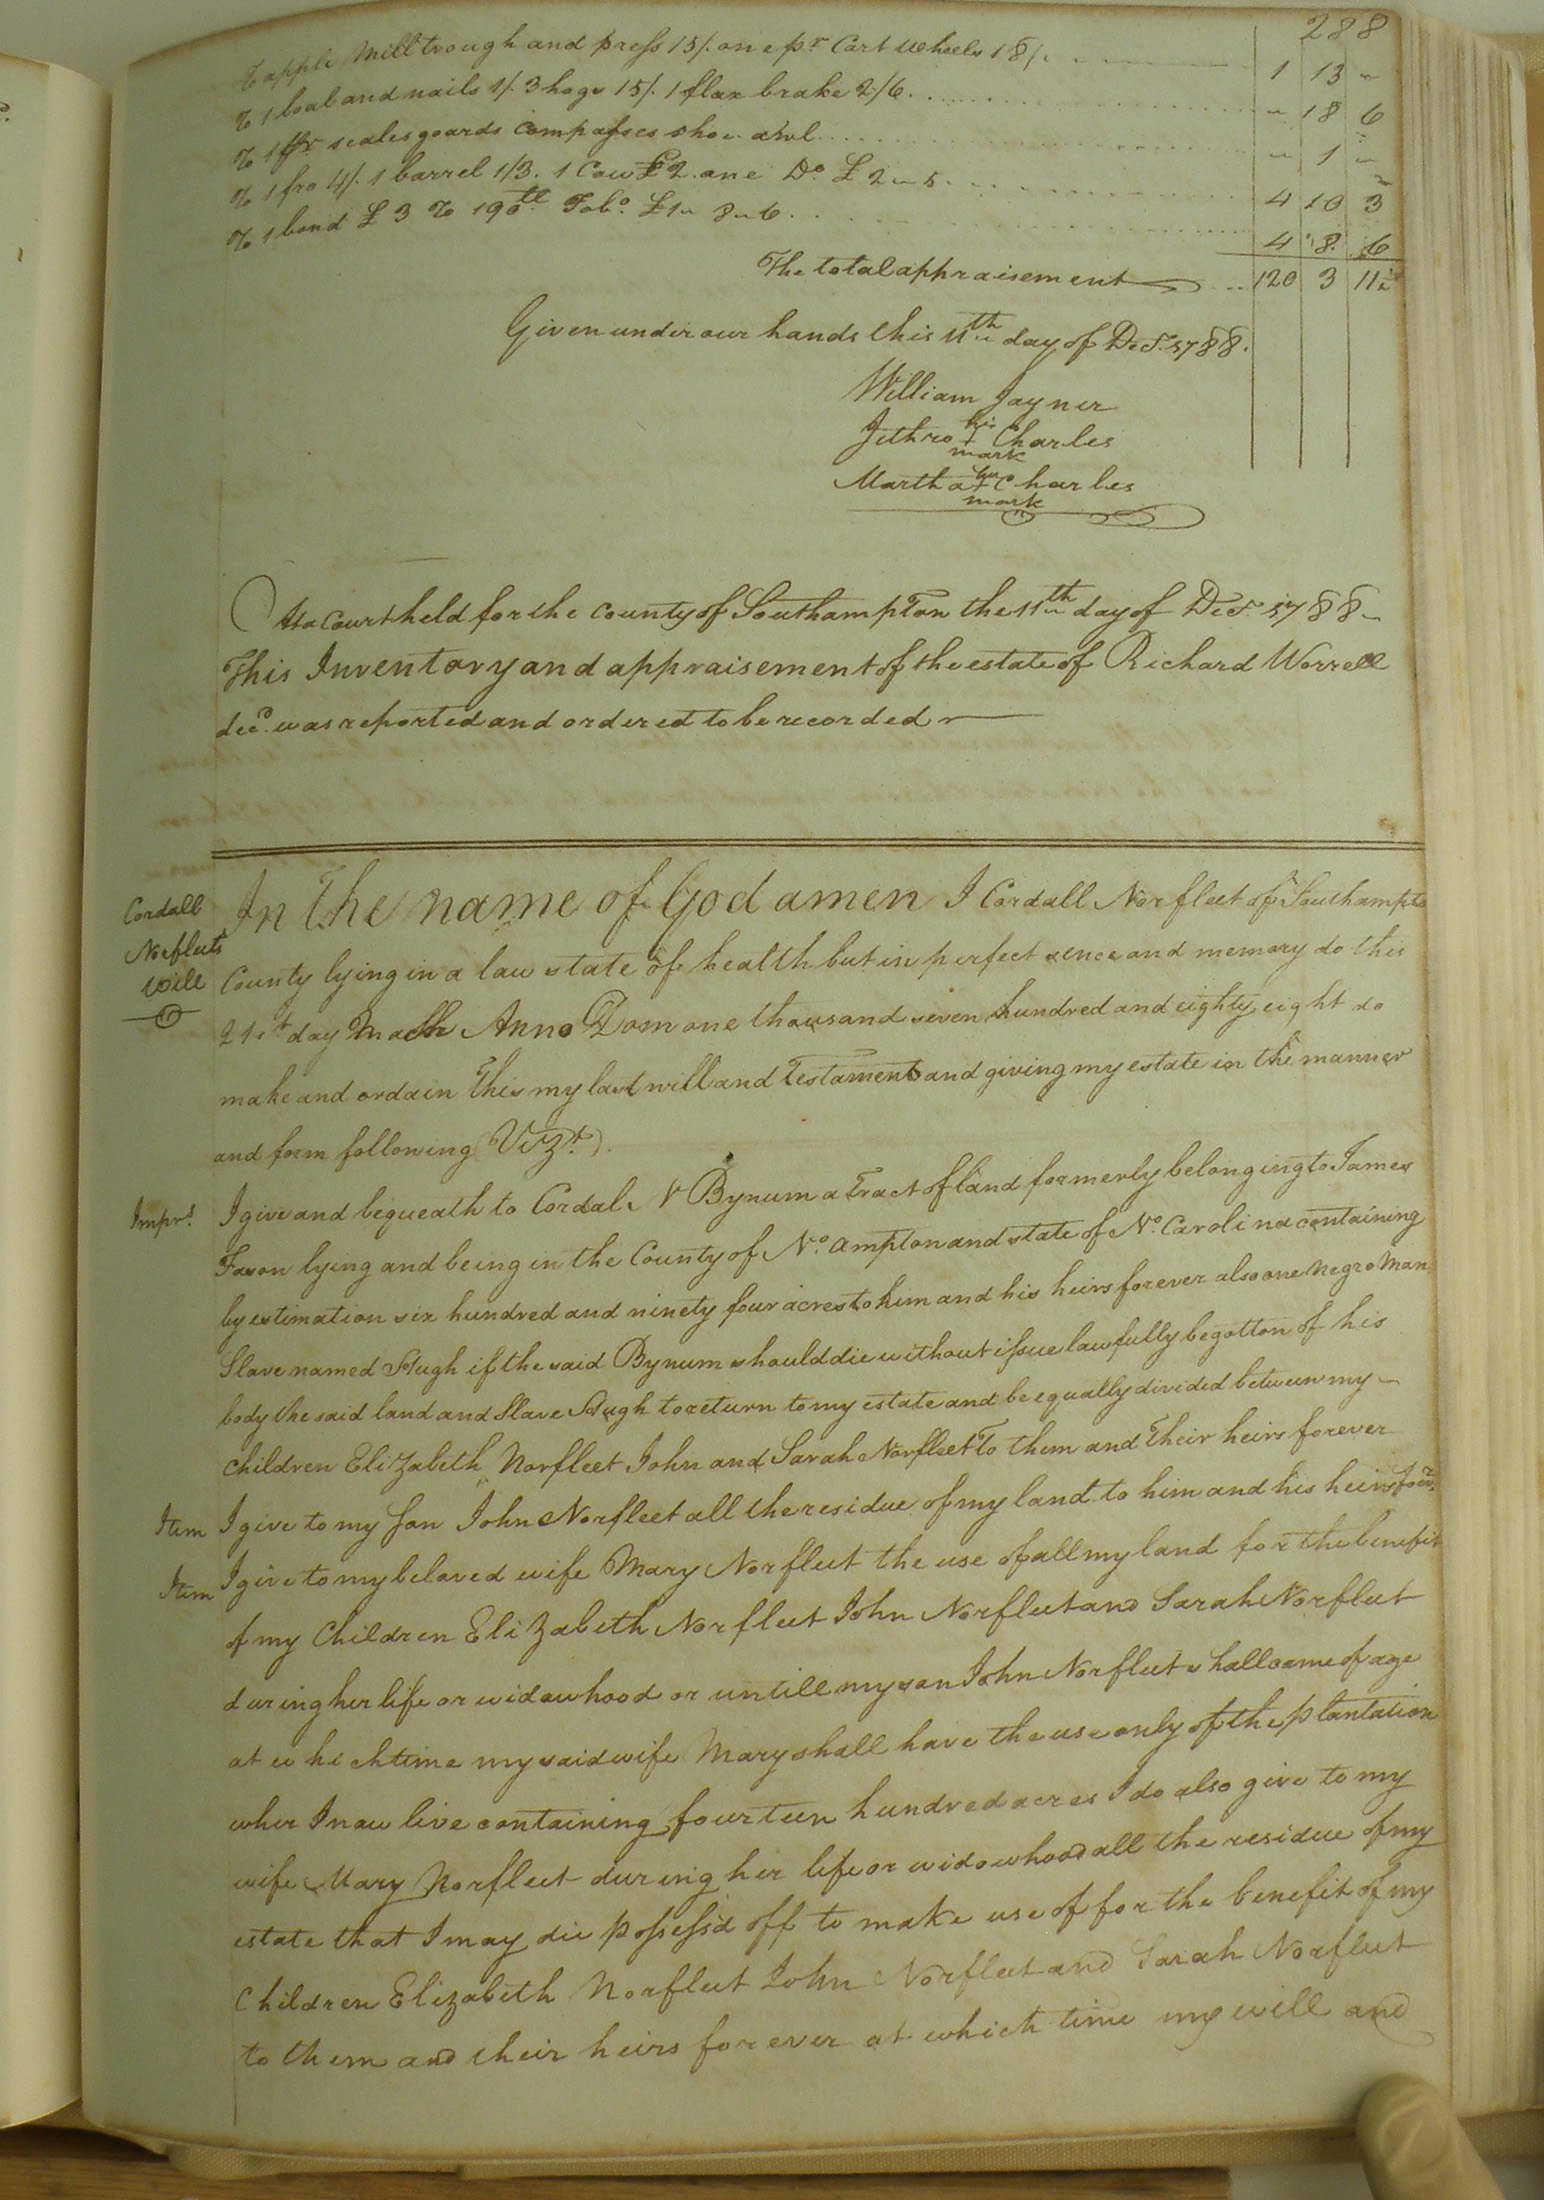 288
To apple Mill trough and press 15/. one pr. Cart wheels 18/. 1 13 "
To 1 boal and nails 1/. 3 hogs 15/. 1 flax brake 2/6. " 18 6
To 1 pr scales goards compasses shoe awl " 1 "
To 1 fro 4/. 1 barrel 1/3. 1 Cow £2. one Do. £2 " 5. 4 10 3
To 1 bond £3 To 190 lb Tobo. £1 " 8 " 6. 4 8 6
The total appraisement 120 3 11½
Given under our hands this 11th day of Decr. 1788.
William Jayner
his
Jethro + Charles
mark
her
Martha + Charles
mark
At a Court held for the County of Southampton the 11th day of Decr. 1788
This Inventory and appraisement of the estate of Richard Worrell
decd. was reported and ordered to be recorded
Cordall
Norfleets
Will
In The name of God amen I Cordall Norfleet of Southampto
County lying in a law state of health but in perfect sence and memory do this
21st day Mach Anno Dom one thousand seven hundred and eighty eight do
make and ordain This my last will and Testament and giving my estate in the manner
and form following (Vizt.)
Imprs. I give and bequeath to Cordal N Bynum a Tract of land formerly belonging to James
Fason lying and being in the County of No. ampton and state of No. Carolina containing
by estimation six hundred and ninety four acres to him and his heirs forever also one Negro Man
Slave named Hugh if the said Bynum should die without issue lawfully begotton of his
body the said land and Slave Hugh to return to my estate and be equally divided between my
children Elizabeth Norfleet John and Sarah Norfleet To them and Their heirs forever
Item I give to my Son John Norfleet all the residue of my land to him and his heirs forer.
Item I give to my beloved wife Mary Norfleet the use of all my land for the benefit
of my Children Elizabeth Norfleet John Norfleet and Sarah Norfleet
during her life or widowhood or untill my son John Norfleet shall come of age
at which time my said wife Mary shall have the use only of the plantation
wher I now live containing fourteen hundred acres I do also give to my
wife Mary Norfleet during her life or widowhood all the residue of my
estate that I may die possess'd off to make use of for the benefit of my
Children Elizabeth Norfleet John Norfleet and Sarah Norfleet
to them and their heirs forever at which time my will and